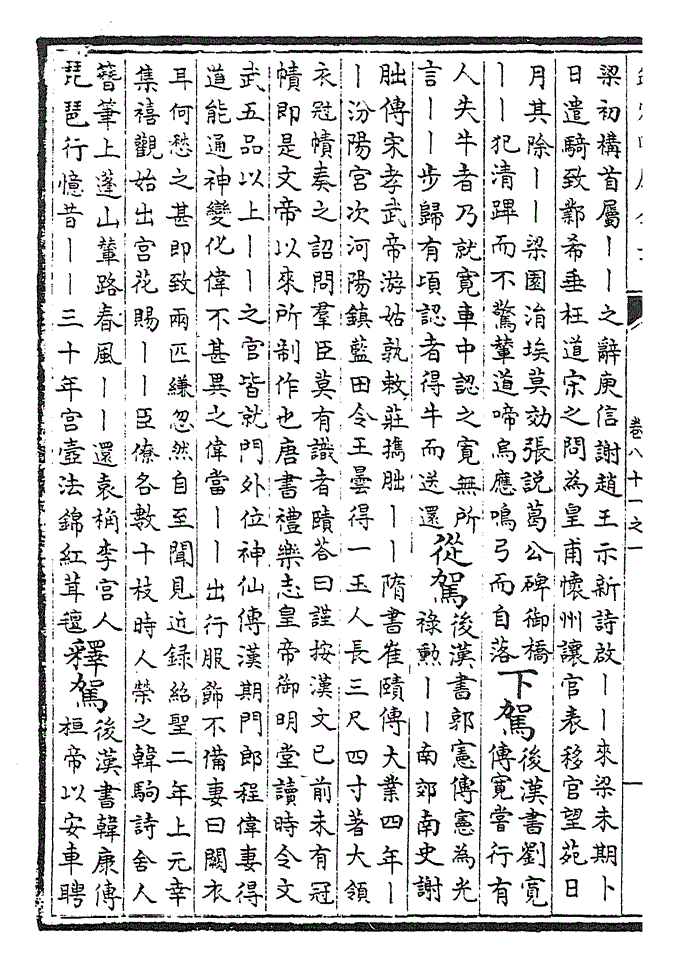 卷八十一之一
梁初構首屬丨丨之辭庾信謝趙王示新詩啟丨丨來梁未期卜
日遣騎致鄴希垂枉道宗之問為皇甫懷州讓官表移官望苑日
月其除丨丨梁園淯埃莫効張説葛公碑御橋
丨丨犯清蹕而不驚輦道啼烏應鳴弓而自落
下駕
後漢書劉寛
傳寛嘗行有
人失牛者乃就寛車中認之寛無所
言丨丨步歸有頃認者得牛而送還
從駕
後漢書郭憲傳憲為光
祿勲丨丨南郊南史謝
朏傳宋孝武帝游姑孰敕莊擕朏丨丨隋書崔賾傳大業四年丨
丨汾陽宮次河陽鎮藍田令王曇得一玉人長三尺四寸著大領
衣冠幘奏之詔問羣臣莫有識者賾荅曰謹按漢文已前未有冠
幘即是文帝以來所制作也唐書禮樂志皇帝御明堂讀時令文
武五品以上丨丨之官皆就門外位神仙傳漢期門郎程偉妻得
道能通神變化偉不甚異之偉當丨丨出行服飾不備妻曰闕衣
耳何愁之甚即致兩匹縑忽然自至聞見近録紹聖二年上元幸
集禧觀始出宮花賜丨丨臣僚各數十枝時人榮之韓駒詩舍人
簪筆上蓬山輦路春風丨丨還袁桷李宮人
琵琶行憶昔丨丨三十年宮壺法錦紅茸氊
釋駕
後漢書韓康傳
桓帝以安車聘